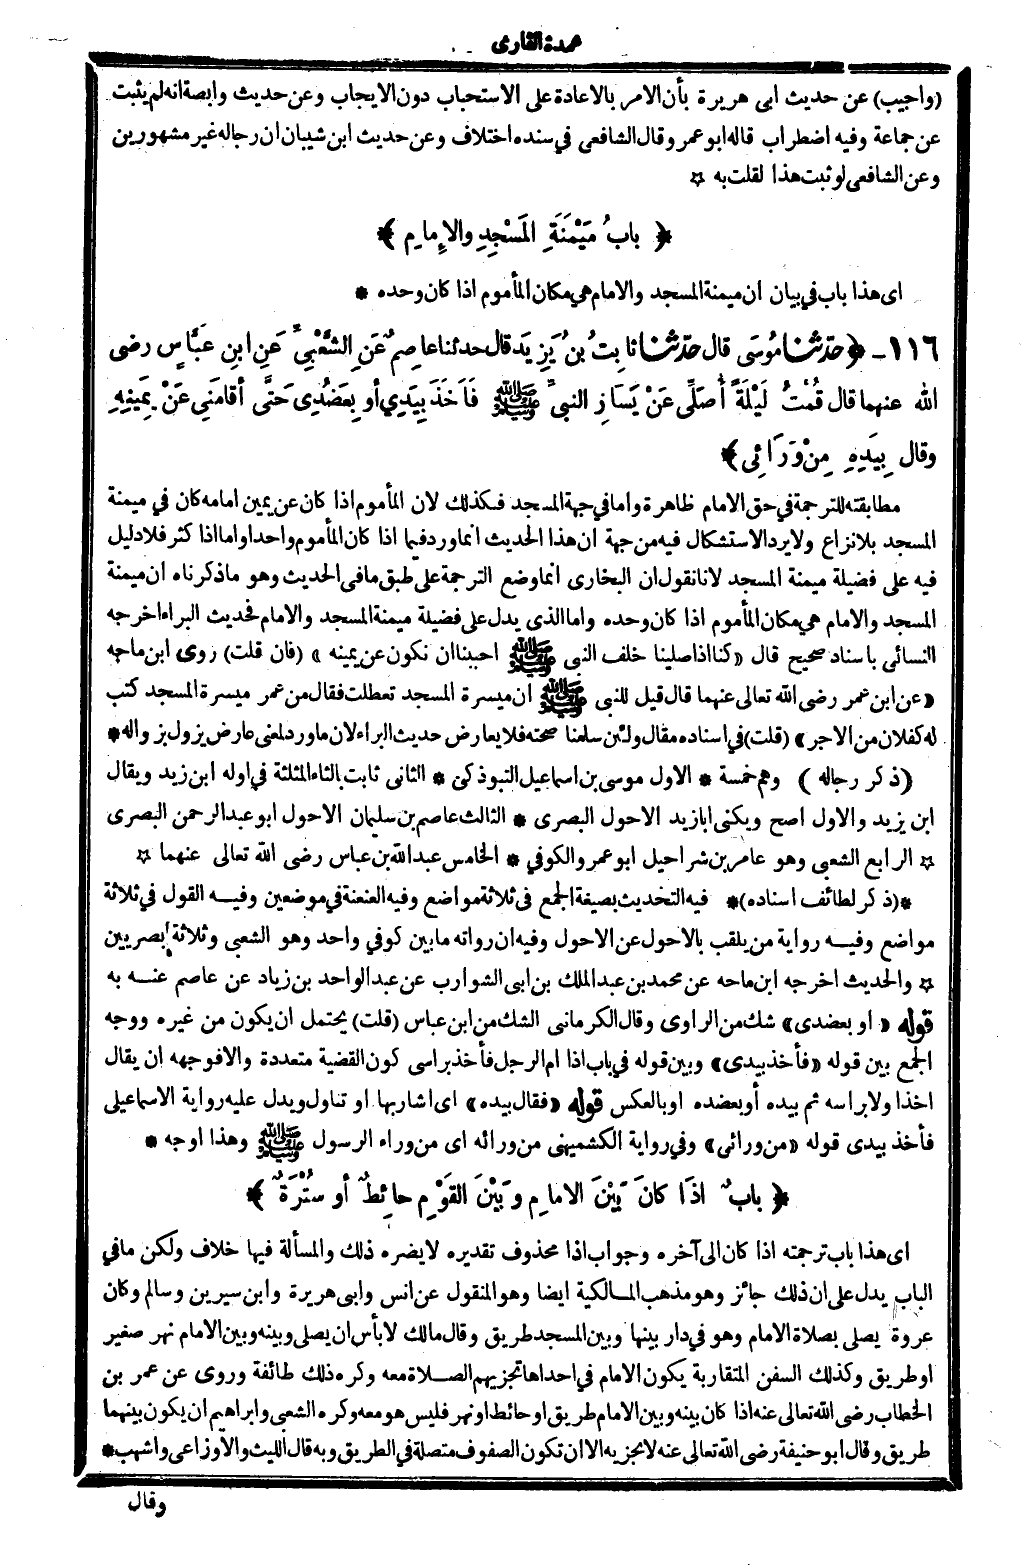 عمدة القارى
(واجيب) عن حديث ابى هريرة بأن الامر بالاعادة على الاستحباب دون الايجاب وعن حديث وابصة انه لم يثبت
عن جماعة وفيه اضطراب قاله ابو عمر وقال الشافعى فى سنده اختلاف وعن حديث ابن شيبان ان رجاله غير مشهورين
وعن الشافعى لو ثبت هذا لقلت به ☆
﴿ بابُ مَيْمَنَةِ المَسْجِدِ والإِمامِ ﴾
اى هذا باب فى بيان ان ميمنة المسجد والامام هى مكان المأموم اذا كان وحده *
١١٦ - ﴿ حدّثنا مُوسَى قال حدّثنا ثابِتُ بنُ يَزِيدَ قال حدثنا عاصِمٌ عَنِ الشَّعْبِىِّ عَنِ ابنِ عَبَّاسٍ رضى
الله عنهما قال قُمْتُ لَيْلَةً أُصَلِّى عَنْ يَسَارِ النبىِّ ﷺ فَأَخَذَ بِيَدِي أو بِعَضُدِى حَتَّى أقامَنِى عَنْ يَمِينِهِ
وقال بِيَدِهِ مِنْ وَرَائِى ﴾
مطابقته للترجمة فى حق الامام ظاهرة واما فى جهة المسجد فكذلك لان المأموم اذا كان عن يمين امامه كان في ميمنة
المسجد بلا نزاع ولا يرد الاستشكال فيه من جهة ان هذا الحديث انما ورد فيما اذا كان المأموم واحدا واما اذا كثر فلا دليل
فيه على فضيلة ميمنة المسجد لانا نقول ان البخارى انما وضع الترجمة على طبق ما فى الحديث وهو ما ذكرناه ان ميمنة
المسجد والامام هى مكان المأموم اذا كان وحده واما الذى يدل على فضيلة ميمنة المسجد والامام فحديث البراء اخرجه
النسائى باسناد صحيح قال «كنا اذا صلينا خلف النبى ﷺ احببنا ان نكون عن يمينه» (فان قلت) روى ابن ماجه
«عن ابن عمر رضى الله تعالى عنهما قال قيل للنبى ﷺ ان ميسرة المسجد تعطلت فقال من عمر ميسرة المسجد كتب
له كفلان من الاجر» (قلت) فى اسناده مقال ولئن سلمنا صحته فلا يعارض حديث البراء لان ما ورد لمعنى عارض يزول بزواله *
(ذكر رجاله) وهم خمسة * الاول موسى بن اسماعيل التبوذكى * الثانى ثابت بالثاء المثلثة في اوله ابن زيد ويقال
ابن يزيد والاول اصح ويكنى ابا زيد الاحول البصرى * الثالث عاصم بن سليمان الاحول ابو عبد الرحمن البصرى
☆ الرابع الشعبى وهو عامر بن شراحيل ابو عمرو الكوفي * الخامس عبد الله بن عباس رضى الله تعالى عنهما ☆
*(ذكر لطائف اسناده)* فيه التحديث بصيغة الجمع فى ثلاثة مواضع وفيه العنعنة فى موضعين وفيه القول فى ثلاثة
مواضع وفيه رواية من يلقب بالاحول عن الاحول وفيه ان رواته ما بين كوفي واحد وهو الشعبى وثلاثة بصريين
☆ والحديث اخرجه ابن ماجه عن محمد بن عبد الملك بن ابى الشوارب عن عبد الواحد بن زياد عن عاصم عنه به
قوله «او بعضدى» شك من الراوى وقال الكرمانى الشك من ابن عباس (قلت) يحتمل ان يكون من غيره ووجه
الجمع بين قوله «فأخذ بيدى» وبين قوله في باب اذا ام الرجل فأخذ براسى كون القضية متعددة والا فوجهه ان يقال
اخذا ولا براسه ثم بيده أو بعضده او بالعكس قوله «فقال بيده» اى اشار بها او تناول ويدل عليه رواية الاسماعيلى
فأخذ بيدى قوله «من ورائى» وفي رواية الكشميهنى من ورائه اى من وراء الرسول ﷺ وهذا اوجه *
﴿ بابٌ اذَا كانَ بَيْنَ الامامِ وبَيْنَ القَوْمِ حائِطٌ أو سُتْرَةٌ ﴾
اى هذا باب ترجمته اذا كان الى آخره وجواب اذا محذوف تقديره لا يضره ذلك والمسألة فيها خلاف ولكن ما في
الباب يدل على ان ذلك جائز وهو مذهب المالكية ايضا وهو المنقول عن انس وابى هريرة وابن سيرين وسالم وكان
عروة يصلى بصلاة الامام وهو في دار بينها وبين المسجد طريق وقال مالك لا بأس ان يصلى وبينه وبين الامام نهر صغير
او طريق وكذلك السفن المتقاربة يكون الامام في احداها تجزيهم الصلاة معه وكره ذلك طائفة وروى عن عمر بن
الخطاب رضى الله تعالى عنه اذا كان بينه وبين الامام طريق او حائط او نهر فليس هو معه وكره الشعبى وابراهيم ان يكون بينهما
طريق وقال ابو حنيفة رضى الله تعالى عنه لا تجزيه الا ان تكون الصفوف متصلة في الطريق وبه قال الليث والاوزاعى واشهب *
وقال